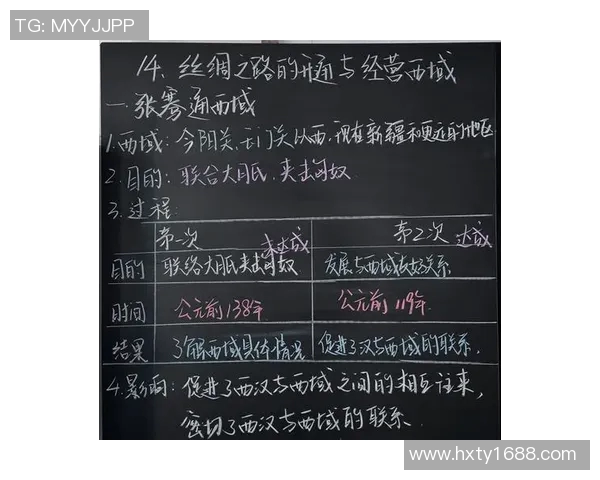 TG: MYYJJPP
14、丝绸之路的开通与经营西域
一、张骞通西域
1.西域：今阳关、玉门关以西，现在新疆和更远的地区
2.目的：联合大月氏，夹击匈奴
3.过程：
第一次 未达成 第2次 达成
目的 联络大月氏夹击匈奴 发展与西域友好关系
时间 公元前138年 公元前119年
结果 了解西域具体情况 促进了汉与西域的联系.
4.影响：促进了西汉与西域之间的相互往来，
密切了西汉与西域的联系.
www.hxty1688.com